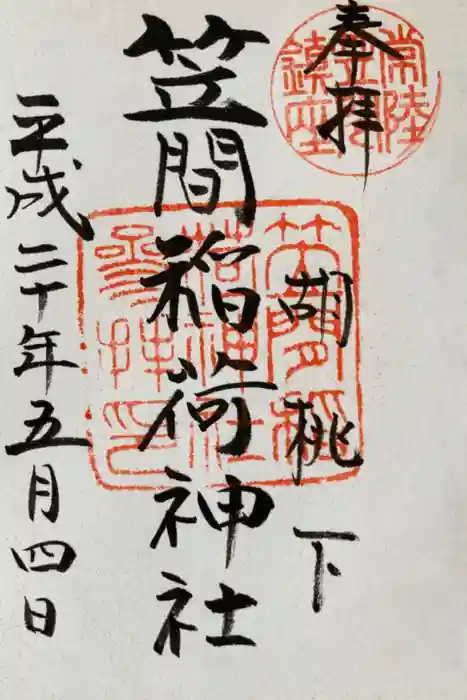 奉拝
胡桃下
笠間稲荷神社
平成二十年五月四日
常陸
鎮座
笠間
稲荷神社
参拝之印